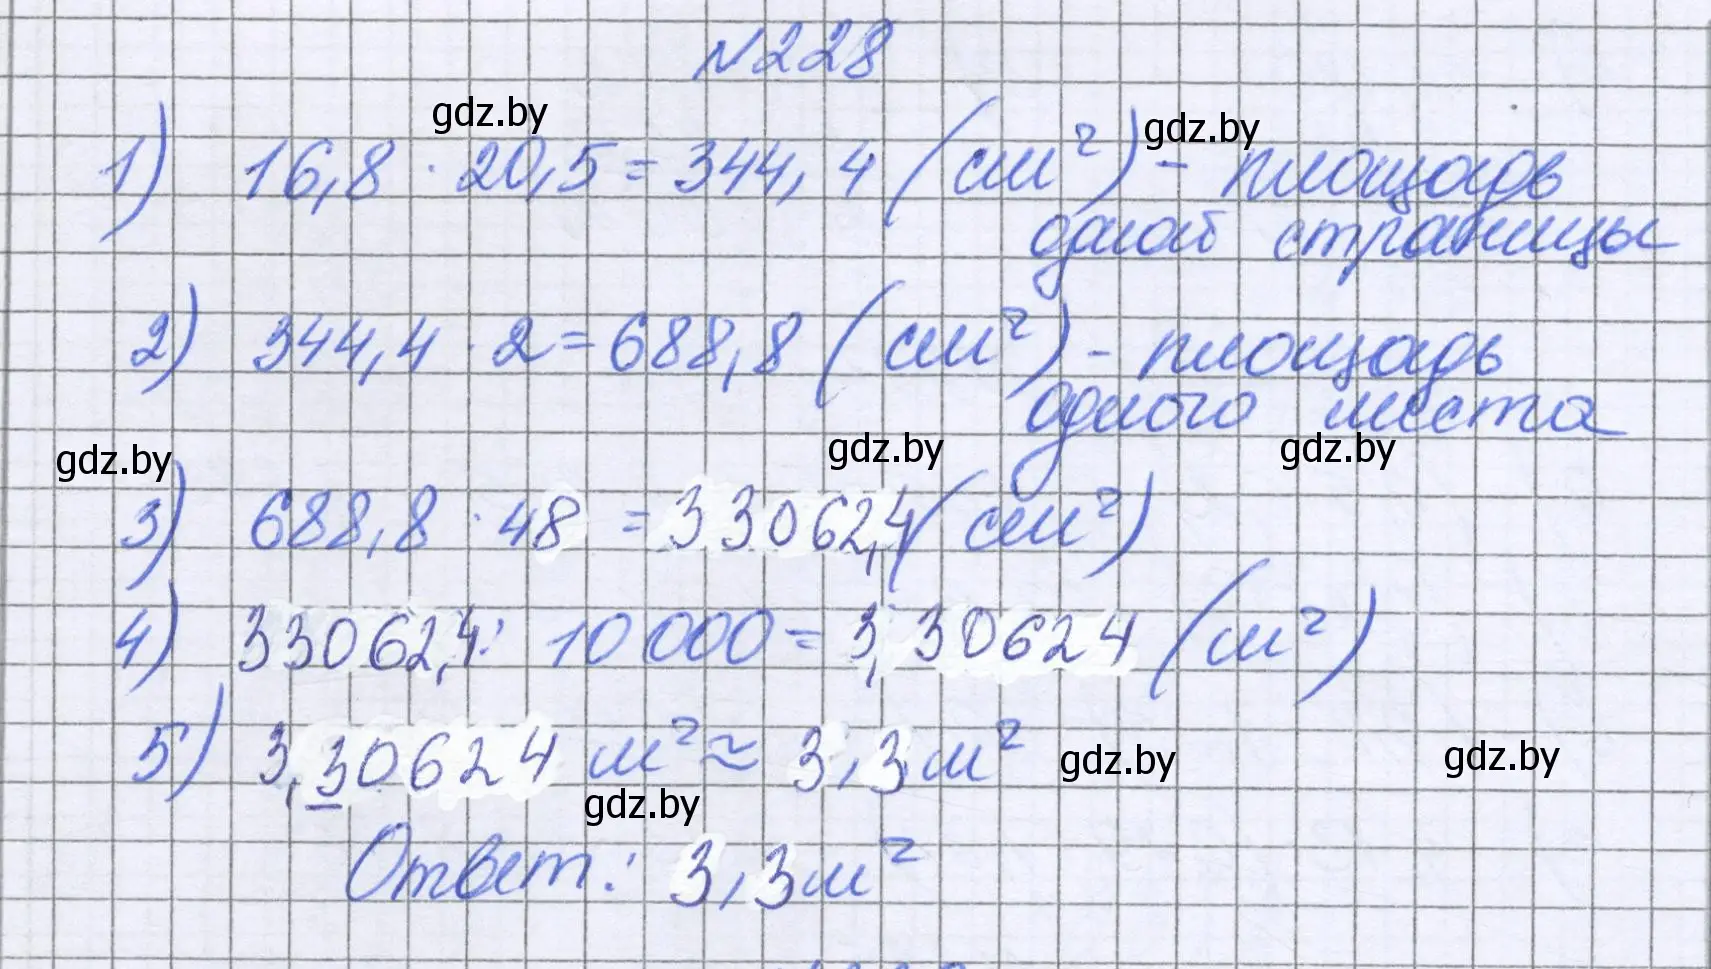 №228
gdz.by
gdz.by
1) 16,8 · 20,5 = 344,4 (см²) - площадь
одной страницы
2) 344,4 · 2 = 688,8 (см²) - площадь
одного листа
gdz.by
gdz.by
gdz.by
3) 688,8 · 48 = 33062,4 (см²)
4) 33062,4 : 10000 = 3,30624 (м²)
5) 3,30624 м² ≈ 3,3 м²
gdz.by
gdz.by
gdz.by
Ответ: 3,3 м²